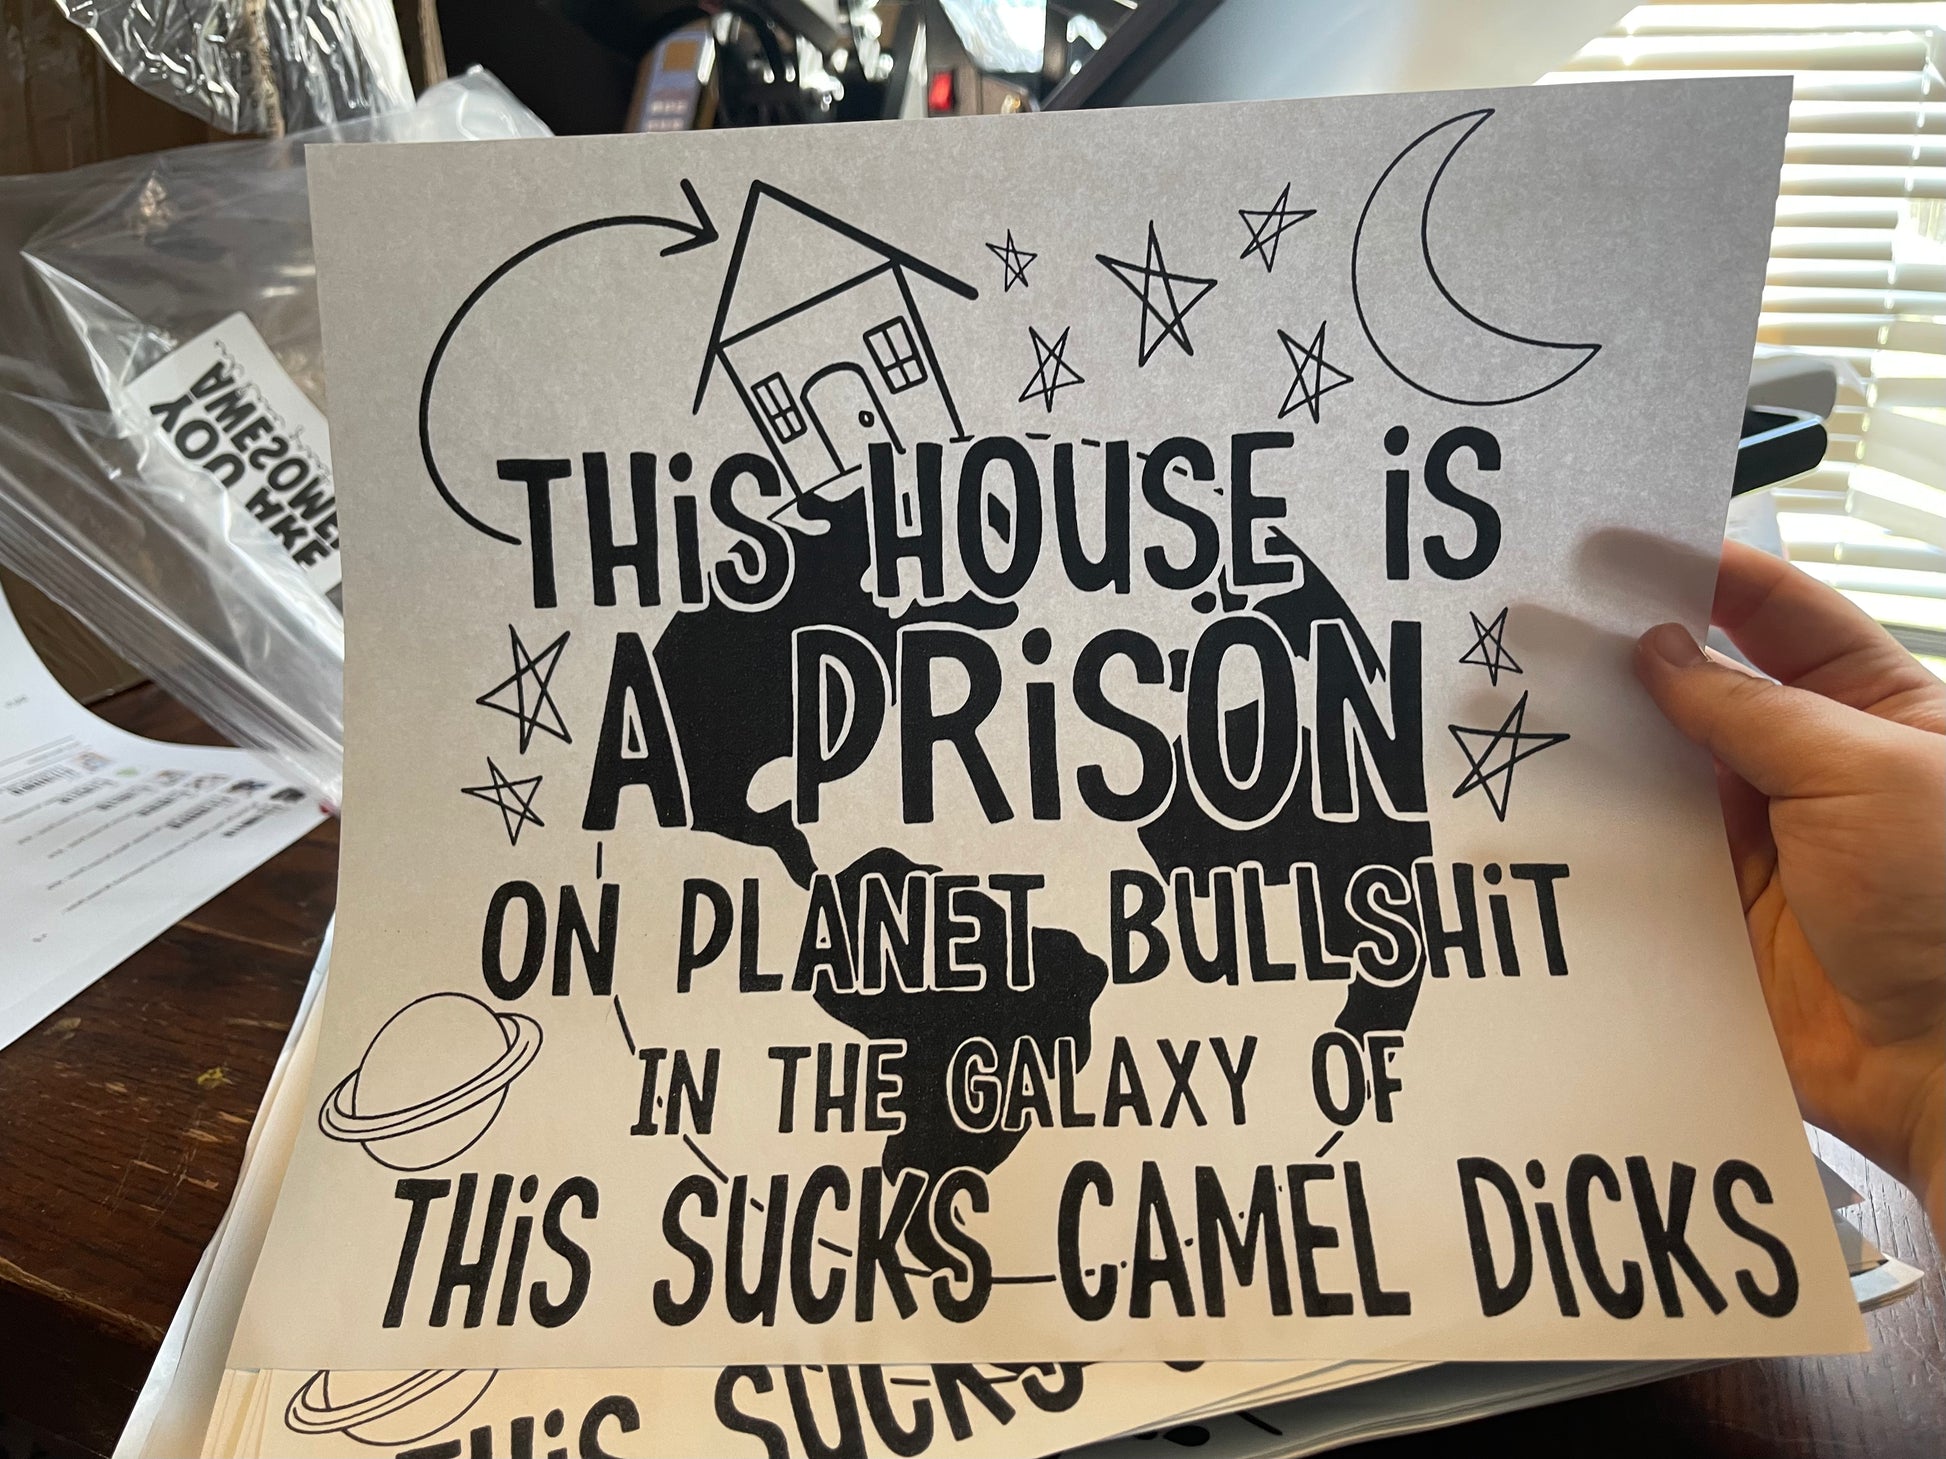 THiS HOUSE iS
A PRiSON
ON PLANET BULLSHiT
IN THE GALAXY OF
THiS SUCKS CAMEL DiCKS
THiS SUCKS
AWESOME
YOU ARE